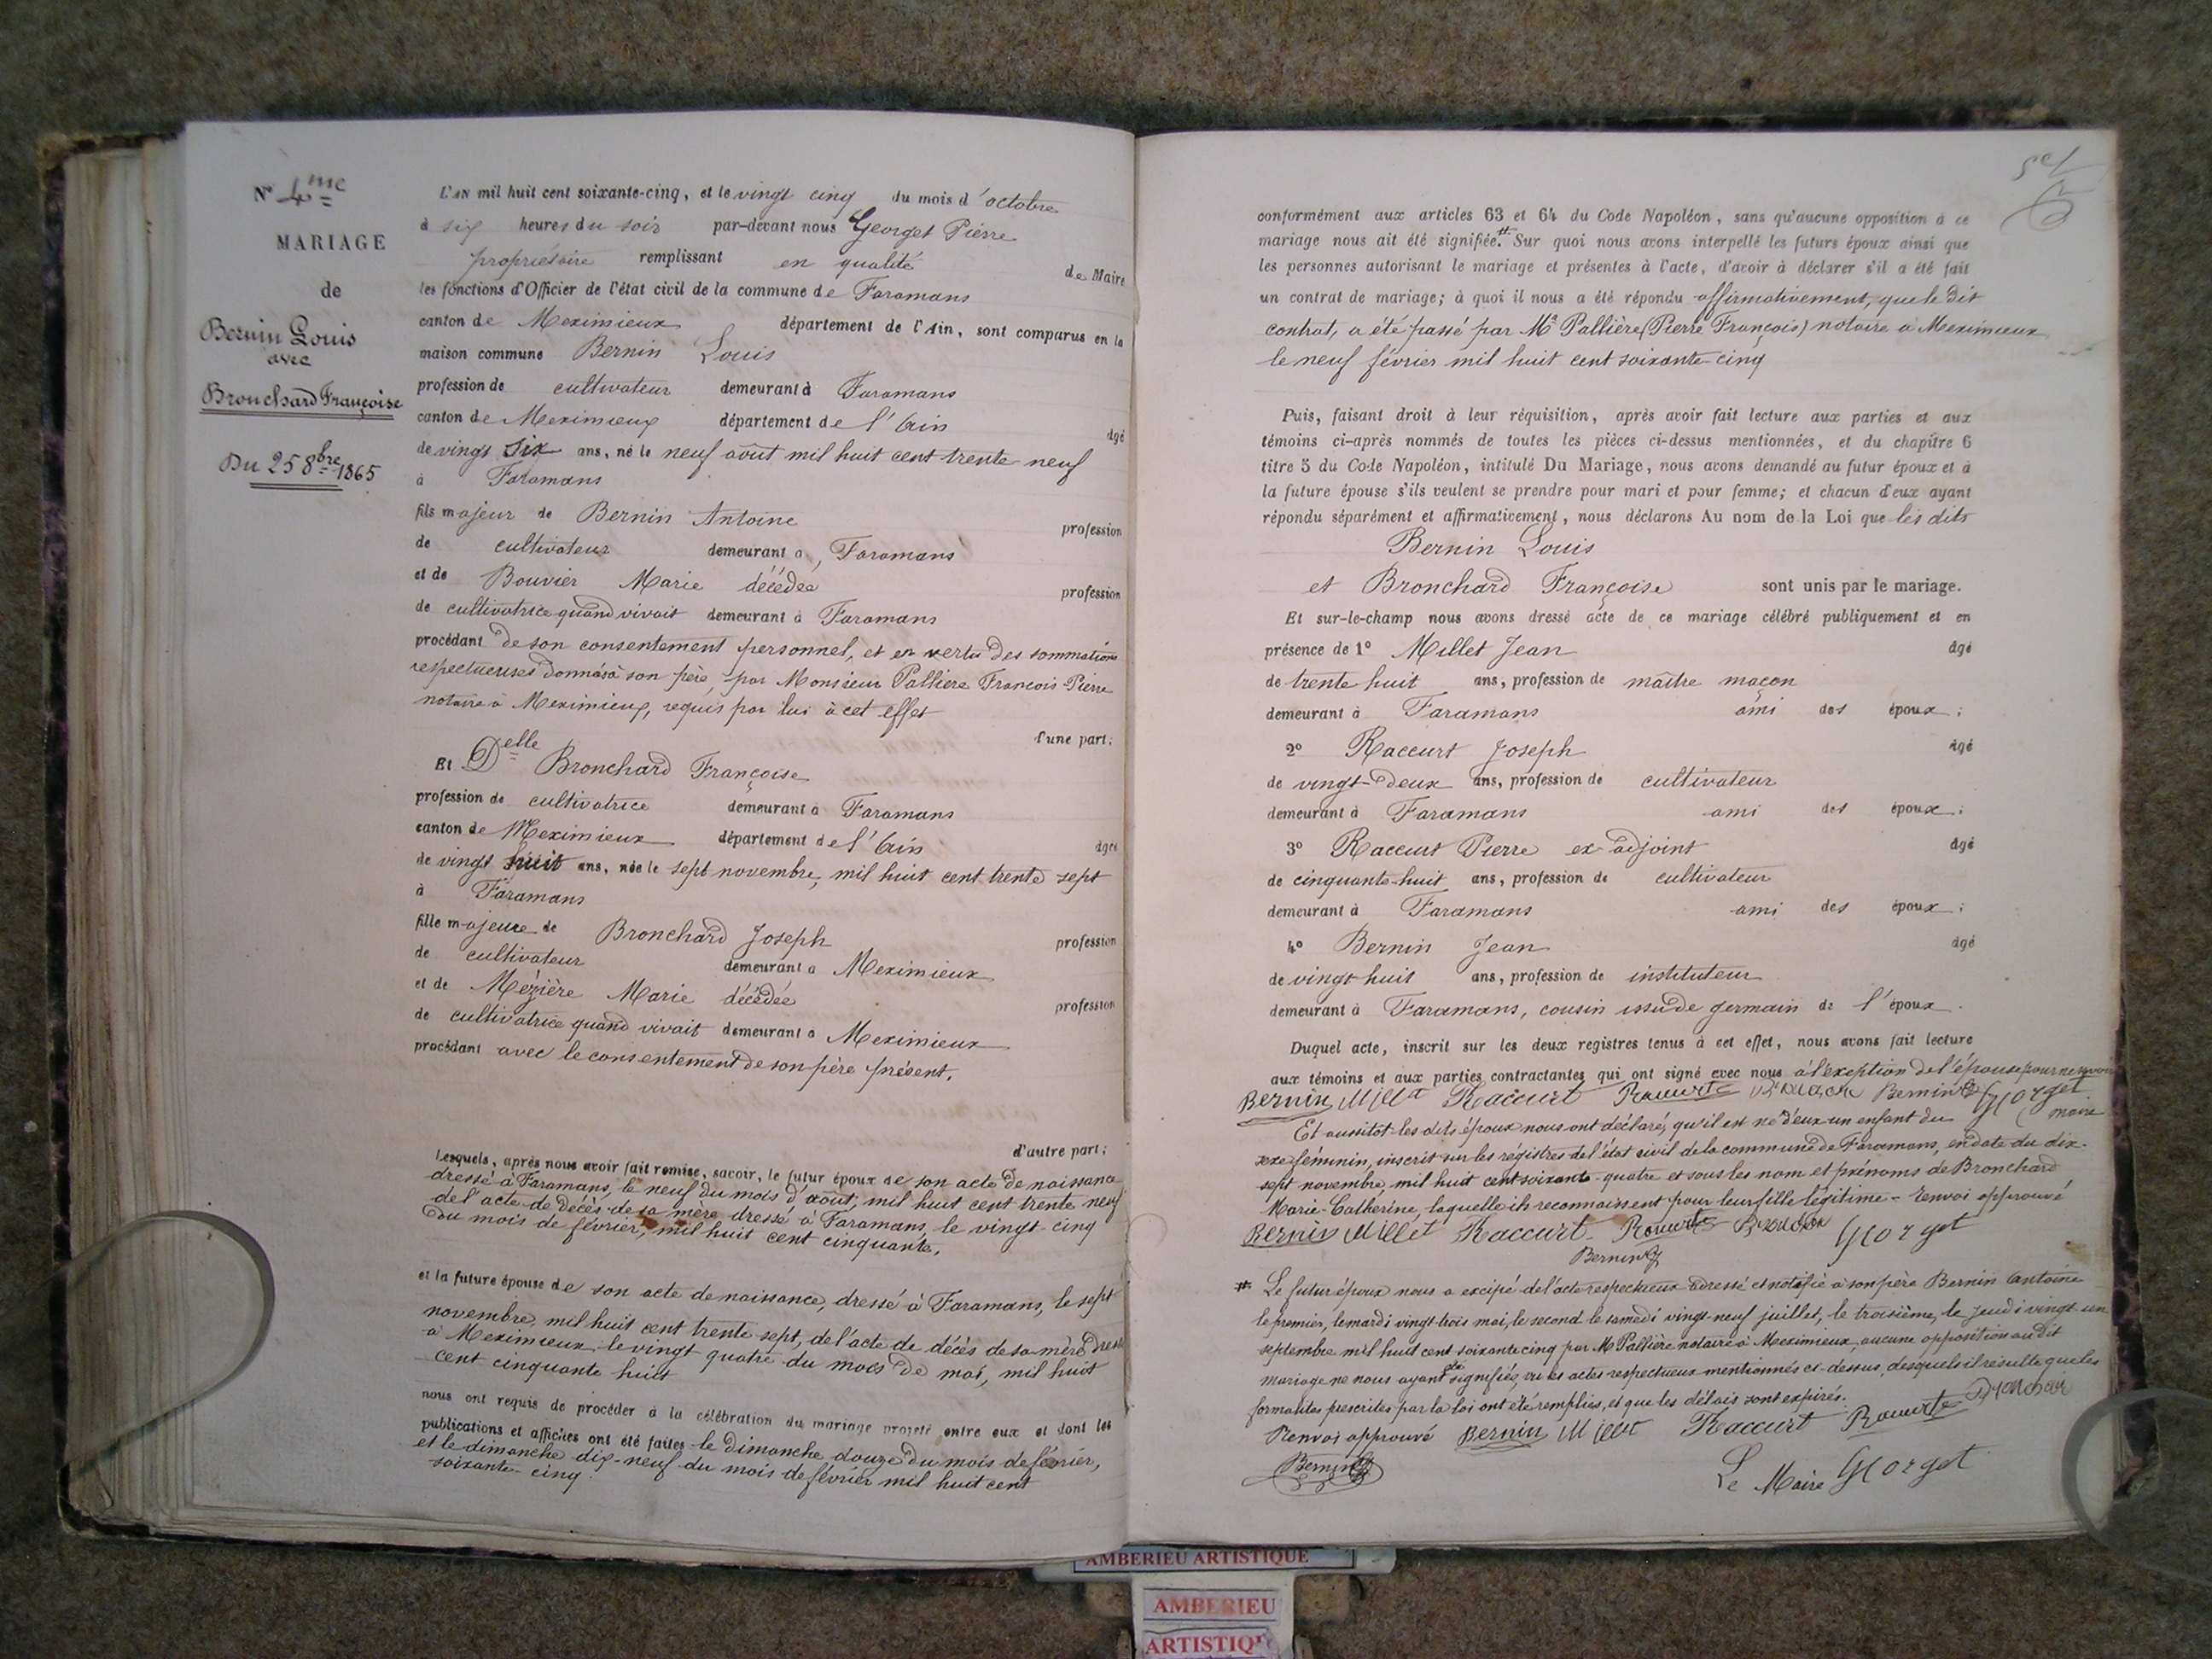 N° 4me
MARIAGE
de
Bernin Louis
avec
Bronchard Françoise
Du 25 8bre 1865
L'AN mil huit cent soixante-cinq, et le vingt cinq du mois d'octobre
à six heures du soir par-devant nous Georget Pierre
propriétaire remplissant en qualité de Maire
les fonctions d'Officier de l'état civil de la commune de Faramans
canton de Meximieux département de l'Ain, sont comparus en la
maison commune Bernin Louis
profession de cultivateur demeurant à Faramans
canton de Meximieux département de l'Ain âgé
de vingt six ans, né le neuf août mil huit cent trente neuf
à Faramans
fils majeur de Bernin Antoine profession
de cultivateur demeurant à Faramans
et de Bouvier Marie décédée profession
de cultivatrice quand vivait demeurant à Faramans
procédant de son consentement personnel, et en vertu des sommations
respectueuses données à son père, par Monsieur Pallière François Pierre
notaire à Meximieux, requis par lui à cet effet
d'une part;
Et Delle Bronchard Françoise
profession de cultivatrice demeurant à Faramans
canton de Meximieux département de l'Ain âgée
de vingt huit ans, née le sept novembre, mil huit cent trente sept
à Faramans
fille majeure de Bronchard Joseph profession
de cultivateur demeurant à Meximieux
et de Mézière Marie décédée profession
de cultivatrice quand vivait demeurant à Meximieux
procédant avec le consentement de son père présent,
d'autre part;
Lesquels, après nous avoir fait remise, savoir, le futur époux de son acte de naissance
dressé à Faramans, le neuf du mois d'août, mil huit cent trente neuf
de l'acte de décès de sa mère dressé à Faramans, le vingt cinq
du mois de février, mil huit cent cinquante,
et la future épouse de son acte de naissance, dressé à Faramans, le sept
novembre, mil huit cent trente sept, de l'acte de décès de sa mère dressé
à Meximieux le vingt quatre du mois de mai, mil huit
cent cinquante huit
nous ont requis de procéder à la célébration du mariage projeté entre eux et dont les
publications et affiches ont été faites le dimanche douze du mois de février,
et le dimanche dix-neuf du mois de février mil huit cent
soixante-cinq
conformément aux articles 63 et 64 du Code Napoléon, sans qu'aucune opposition à ce
mariage nous ait été signifiée.# Sur quoi nous avons interpellé les futurs époux ainsi que
les personnes autorisant le mariage et présentes à l'acte, d'avoir à déclarer s'il a été fait
un contrat de mariage; à quoi il nous a été répondu affirmativement, que le dit
contrat, a été passé par Me Pallière (Pierre François) notaire à Meximieux
le neuf février mil huit cent soixante-cinq
Puis, faisant droit à leur réquisition, après avoir fait lecture aux parties et aux
témoins ci-après nommés de toutes les pièces ci-dessus mentionnées, et du chapitre 6
titre 5 du Code Napoléon, intitulé Du Mariage, nous avons demandé au futur époux et à
la future épouse s'ils veulent se prendre pour mari et pour femme; et chacun d'eux ayant
répondu séparément et affirmativement, nous déclarons Au nom de la Loi que les dits
Bernin Louis
et Bronchard Françoise sont unis par le mariage.
Et sur-le-champ nous avons dressé acte de ce mariage célébré publiquement et en
présence de 1° Millet Jean âgé
de trente huit ans, profession de maître maçon
demeurant à Faramans ami des époux;
2° Raccurt Joseph âgé
de vingt-deux ans, profession de cultivateur
demeurant à Faramans ami des époux;
3° Raccurt Pierre ex-adjoint âgé
de cinquante-huit ans, profession de cultivateur
demeurant à Faramans ami des époux;
4° Bernin Jean âgé
de vingt huit ans, profession de instituteur
demeurant à Faramans, cousin issu de germain de l'époux.
Duquel acte, inscrit sur les deux registres tenus à cet effet, nous avons fait lecture
aux témoins et aux parties contractantes qui ont signé avec nous à l'exeption de l'épouse pour ne savoir
Bernin Millet Raccurt Bernin Georget
maire
Et aussitôt les dits époux nous ont déclaré, qu'il est né d'eux un enfant du
sexe féminin, inscrit sur les régistres de l'état civil de la commune de Faramans, en date du dix-
sept novembre, mil huit cent soixante-quatre et sous les nom et prénoms de Bronchard
Marie-Catherine, laquelle ils reconnaissent pour leur fille légitime - Renvoi approuvé
Bernin Millet Raccurt Georget
Bernin
# Le futur époux nous a excipé de l'acte respectueux adressé et notifié à son père Bernin Antoine
le premier, le mardi vingt-trois mai, le second le samedi vingt-neuf juillet, le troisième, le jeudi vingt-un
septembre mil huit cent soixante cinq par Me Pallière notaire à Meximieux, aucune opposition au dit
mariage ne nous ayant été signifiée, vu les actes respectueux mentionnés ci-dessus, desquels il résulte que les
formalités prescrites par la loi ont été remplies, et que les délais sont expirés.
Renvoi approuvé Bernin Millet Raccurt
Bernin
Le Maire Georget
AMBERIEU ARTISTIQUE
AMBERIEU
ARTISTIQUE